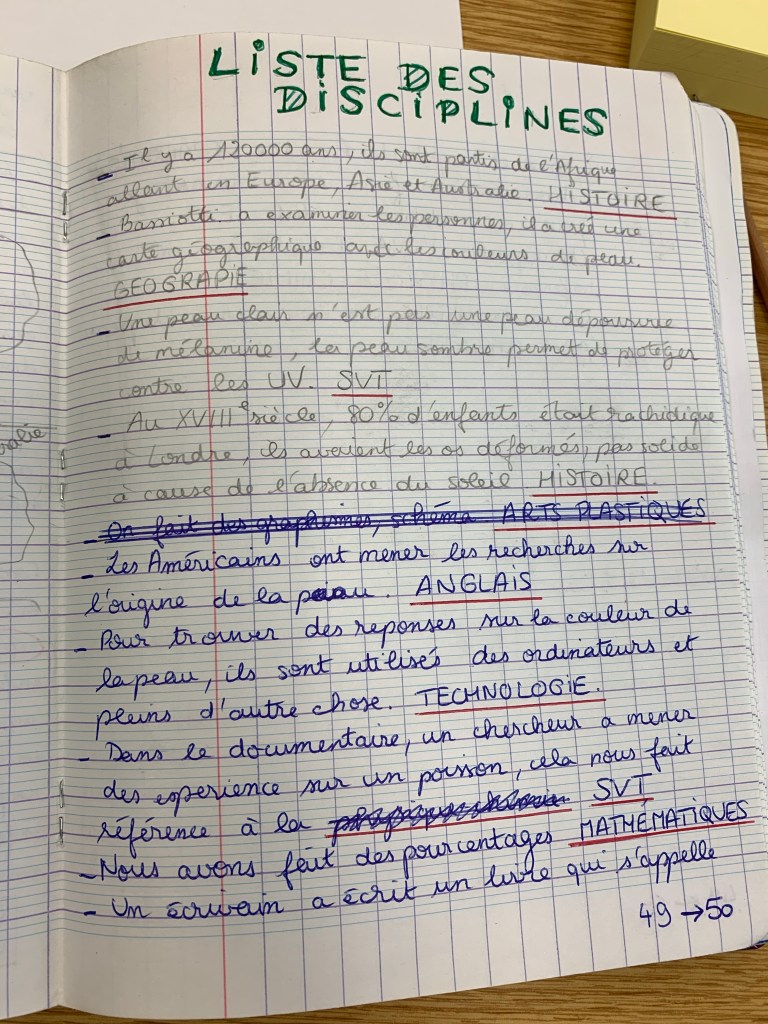 LISTE DES
DISCIPLINES
- Il y a 120000 ans, ils sont partis de l'Afrique
allant en Europe, Asie et Australie. HISTOIRE
- Barsiotti a examiner les personnes, il a créé une
carte géographique avec les couleurs de peau.
GEOGRAPIE
- Une peau clair n'est pas une peau dépourvue
de mélanine, la peau sombre permet de protéger
contre les UV. SVT
- Au XVIIIe siècle, 80% d'enfants était rachidique
à Londre, ils avaient les os déformés, pas solide
à cause de l'absence du soleil HISTOIRE.
- On fait des graphismes, schéma ARTS PLASTIQUES
- Les Américains ont mener les recherches sur
l'origine de la peau. ANGLAIS
- Pour trouver des reponses sur la couleur de
la peau, ils sont utilisés des ordinateurs et
pleins d'autre chose. TECHNOLOGIE.
- Dans le documentaire, un chercheur a mener
des experience sur un poisson, cela nous fait
référence à la SVT
- Nous avons fait des pourcentages MATHÉMATIQUES
- Un écrivain a écrit un livre qui s'appelle
49 → 50